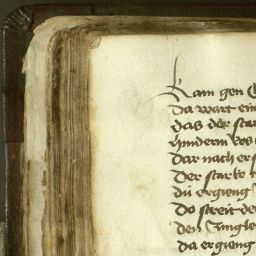 Kam gen
Da wart ein
das der star
hindern
Dar nach er
Der starke
du ergieng
Do streit de
den Jungle
da ergieng